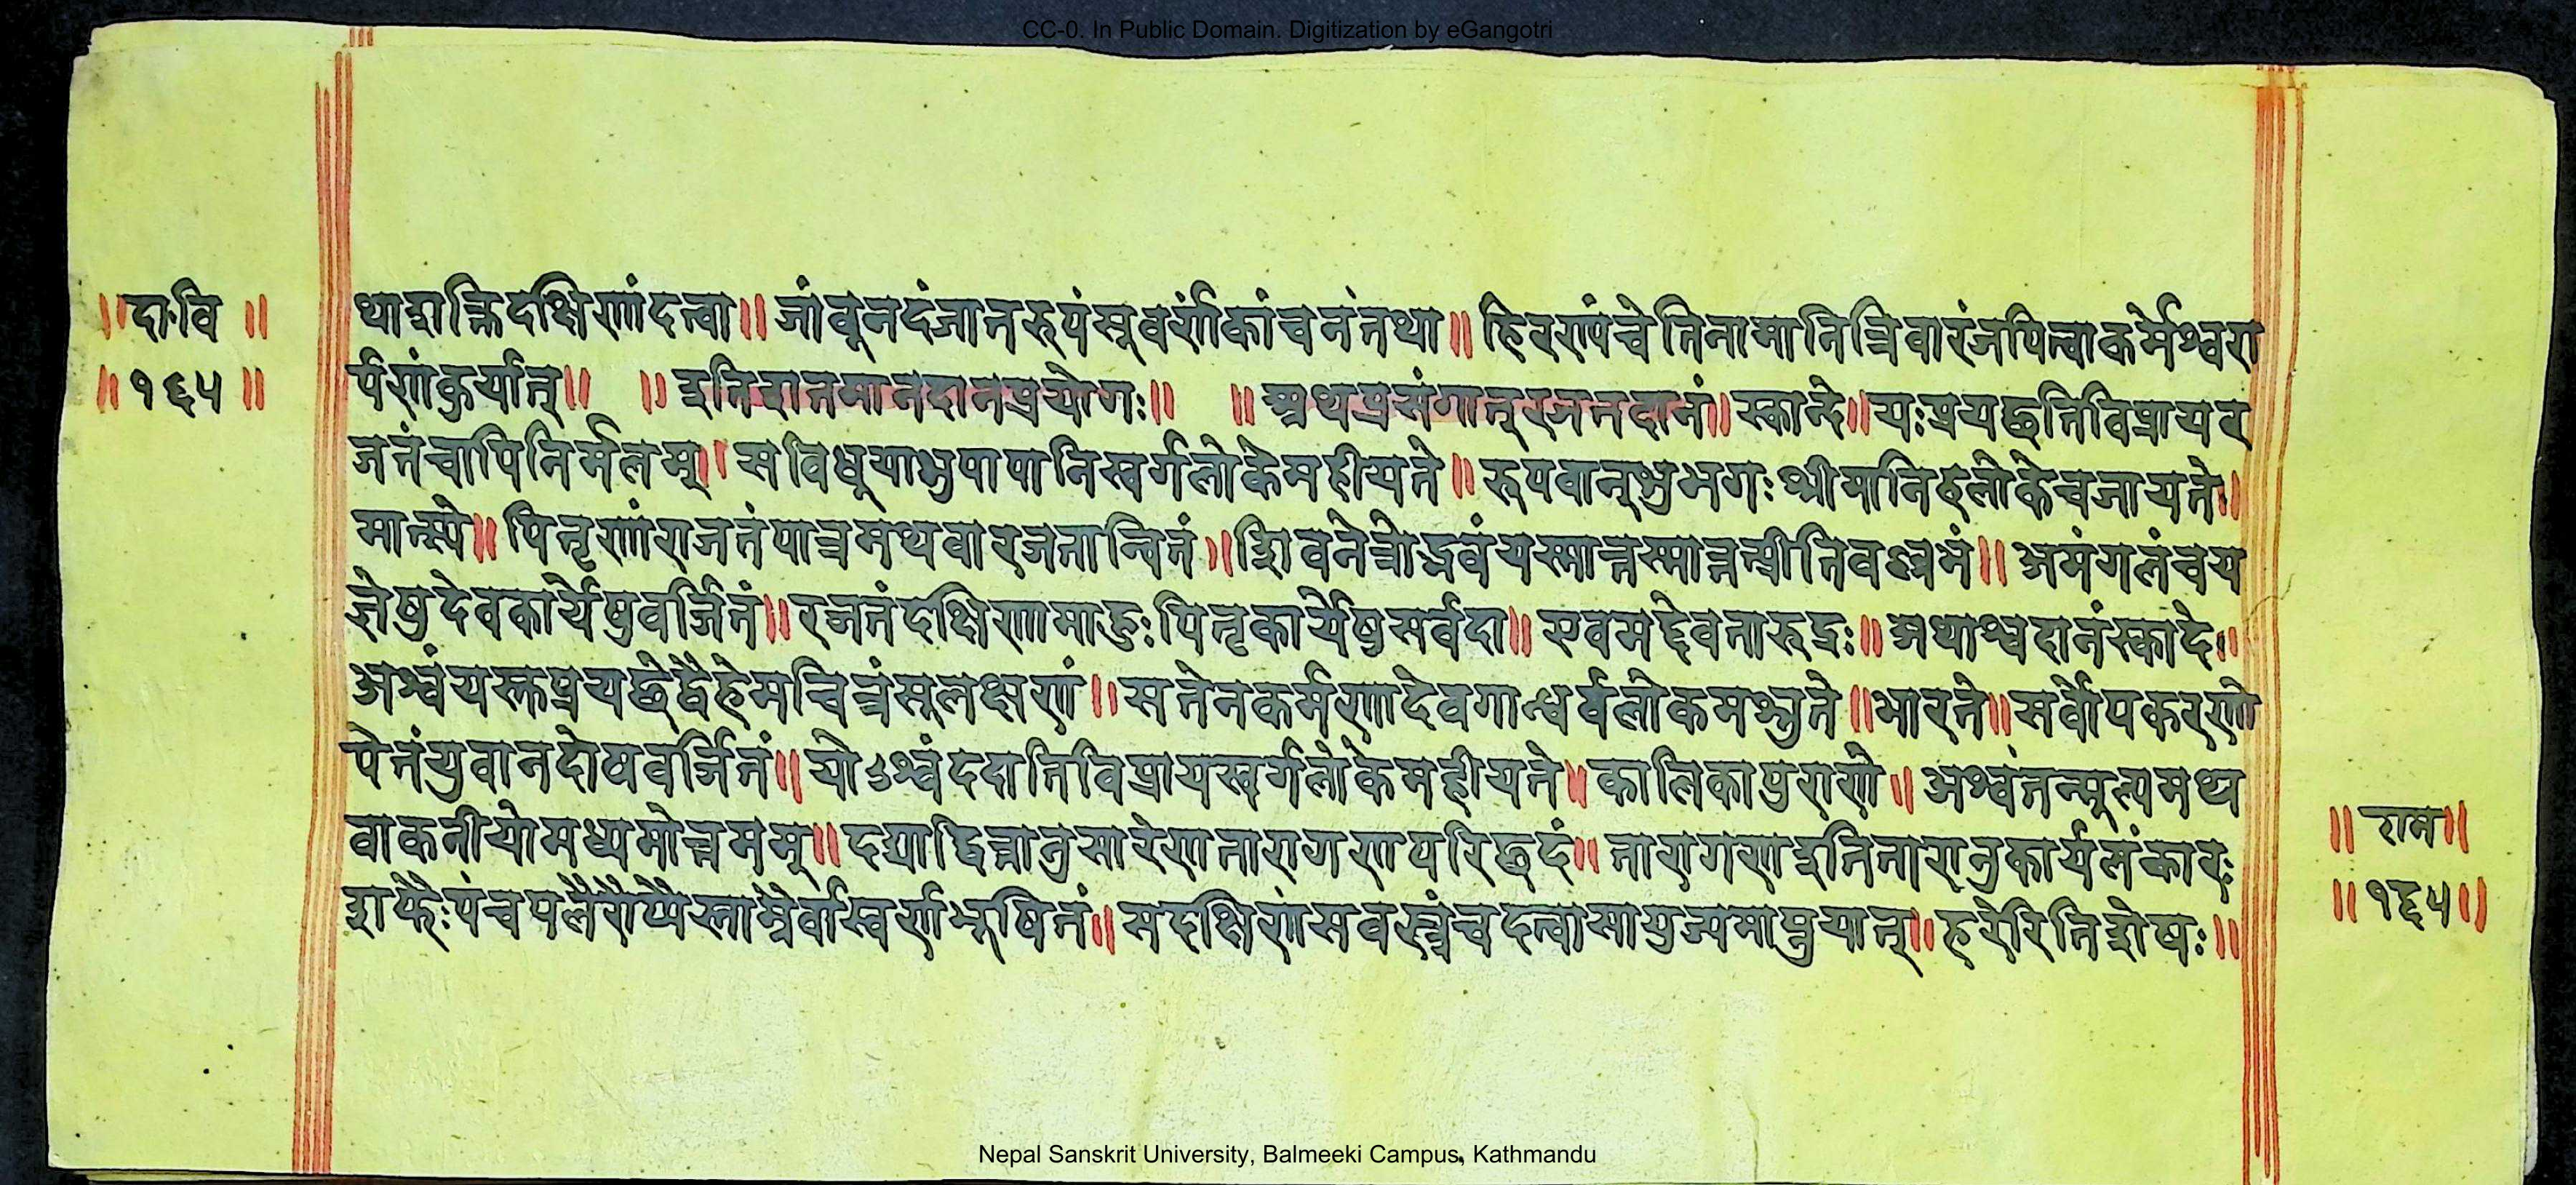 CC-0. In Public Domain. Digitization by eGangotri
॥दा.वि॥
॥१६५॥
थाशक्तिदक्षिणांदत्वा॥ जांवुनदंजातरुपंसूवर्णकांचनंतथा॥ हिरण्यंचेतिनामानित्रिवारंजपित्वाकर्मेश्वरा
र्पणंकुर्यात्॥ ॥इतिशतमानदानप्रयोगः॥ ॥अथप्रसंगात्रजतदानं॥स्कान्दे॥यःप्रयछतिविप्रायर
जतंचापिनिर्मलम्। सविधुयाशुपापानिस्वर्गलोकेमहीयते॥ रूपवान्शुभगःश्रीमानिहलोकेचजायते॥
मात्स्ये॥ पितृणांराजतंपात्रमथवारजतान्वितं॥शिवनेत्रोद्भवंयस्मात्तस्मात्तत्प्रीतिवल्लभं॥ अमंगलंचय
ज्ञेषुदेवकार्येषुवर्जितं॥ रजतंदक्षिणामाहुःपितृकार्येषुसर्वदा॥ एवमद्देवतारुद्रः॥ अथाश्वदानंस्कादे॥
अश्वंयस्तप्रयछेद्वैहेमचित्रंसुलक्षणं॥ सतेनकर्मणादेवगान्धर्वलोकमश्नुते॥भारते॥सर्वोपकरणो
पेतंयुवानदोषवर्जितं॥योऽश्वंददातिविप्रायस्वर्गलोकेमहीयते॥ कालिकापुराणे॥ अश्वंतन्मूल्यमथ
वाकनीयोमध्यमोत्तमम्॥ दद्याद्वित्तानुसारेणतारागणपरिछदं॥ तारागणइतितारानुकार्यलंकारः
शफैःपंचपलैरौप्यैस्ताम्रैर्वास्वर्णभूषितं॥ सदक्षिणंसवस्त्रंचदत्वासायुज्यमाप्नुयात्॥हरेरितिशेषः॥
॥राम॥
॥१६५॥
Nepal Sanskrit University, Balmeeki Campus, Kathmandu